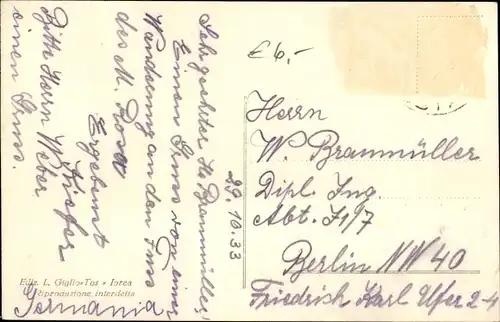 Sehr geehrter H. Braumüller!
Einen Gruss von einer
Wanderung an den Fuss
des M. Rosa
Ergebenst
Kiefer
Bitte Herrn Weber
einen Gruss.
29.10.33
£ 6,-
Herrn
W. Braumüller
Dipl. Ing.
Abt. F1/7
Berlin NW 40
Friedrich Karl Ufer 2-4
Ediz. L. Giglio-Tos - Ivrea
Riproduzione interdetta
Germania